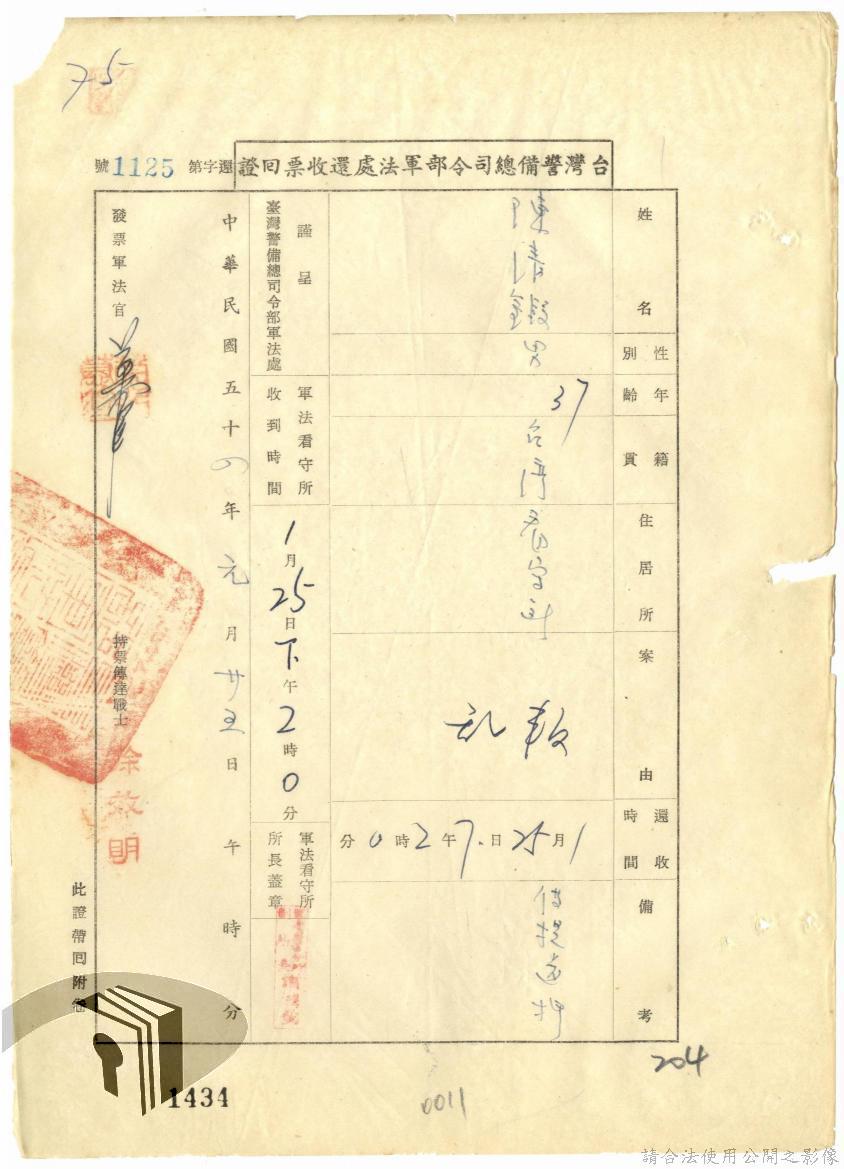 75
台灣警備總司令部軍法處還收票回證
還字第1125號
姓名
陳清鏗
性別
男
年齡
37
籍貫
台灣
住居所
看守所
案由
叛亂
還收時間
1月25日下午2時0分
備考
借提還押
謹呈
臺灣警備總司令部軍法處
軍法看守所收到時間
1月25日下午2時0分
軍法看守所所長蓋章
中華民國五十四年元月廿五日午時分
發票軍法官
持票傳達戰士
徐效明
此證帶回附卷
204
1434
0011
請合法使用公開之影像